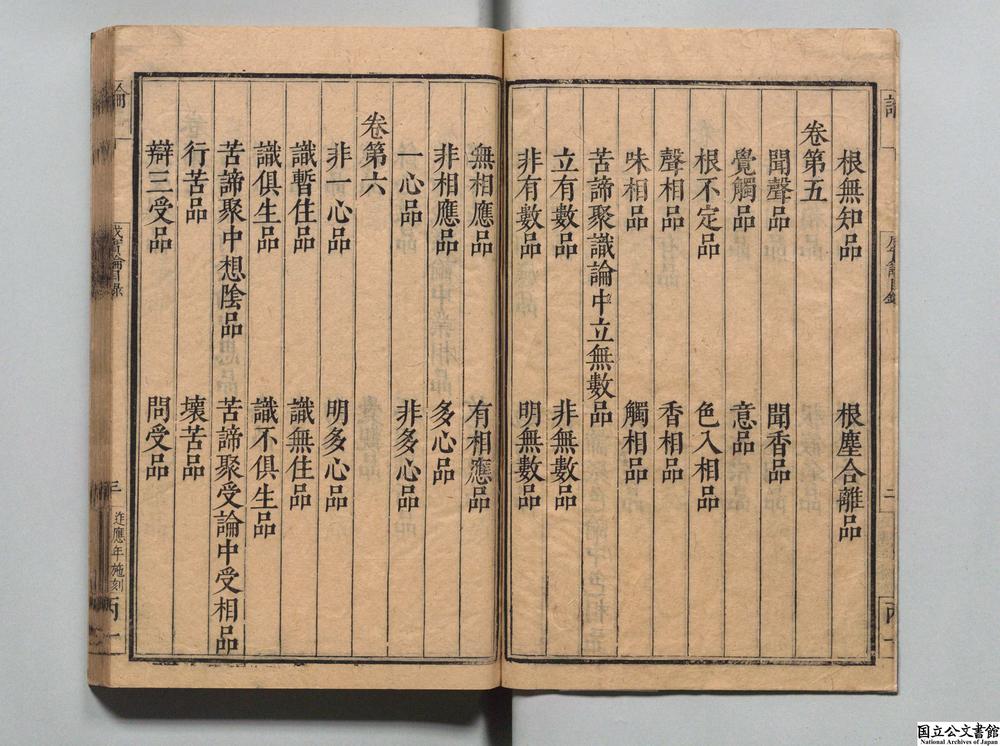 根無知品　根塵合離品
卷第五
聞聲品　聞香品
覺觸品　意品
根不定品　色入相品
聲相品　香相品
味相品　觸相品
苦諦聚識論中立無數品
立有數品　非無數品
非有數品　明無數品
無相應品　有相應品
非相應品　多心品
一心品　非多心品
卷第六
非一心品　明多心品
識暫住品　識無住品
識俱生品　識不俱生品
苦諦聚中想陰品　苦諦聚受論中受相品
行苦品　壞苦品
辯三受品　問受品
成實論目錄
三
應年施刻
丙一
国立公文書館
National Archives of Japan